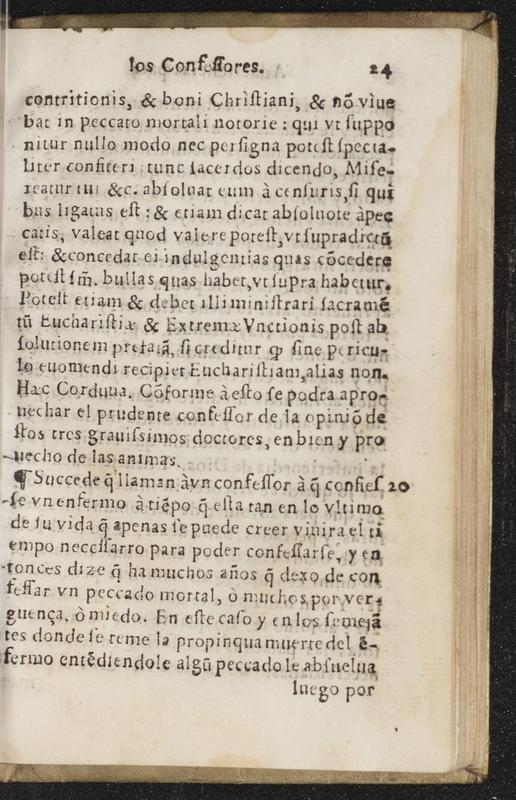 los Confeſſores. 24
contritionis, & boni Chriſtiani, & nõ viue
bat in peccato mortali notorie: qui vt ſuppo
nitur nullo modo nec per ſigna poteſt ſpecta-
liter confiteri tunc ſacerdos dicendo, Miſe-
reatur tui &c. abſoluat eum à cenſuris, ſi qui
bus ligatus eſt: & etiam dicat abſoluote à pec
catis, valeat quod valere poteſt, vt ſupradictũ
eſt: & concedat ei indulgentias quas cõcedere
poteſt ſm̃. bullas quas habet, vt ſupra habetur.
Poteſt etiam & debet illi miniſtrari ſacramẽ
tũ Euchariſtiæ & Extremæ Vnctionis poſt ab
ſolutionem prefatã, ſi creditur ꝙ ſine pericu-
lo euomendi recipiet Euchariſtiam, alias non.
Hæc Corduua. Cõforme à eſto ſe podra apro-
uechar el prudente confeſſor de la opiniõ de
ſtos tres grauiſsimos doctores, en bien y pro
uecho de las animas.
¶ Succede q̃ llaman à vn confeſſor à q̃ confieſ 20
ſe vn enfermo à tiẽpo q̃ eſta tan en lo vltimo
de ſu vida q̃ apenas ſe puede creer viuira el ti
empo neceſſarro para poder confeſſarſe, y en
tonces dize q̃ ha muchos años q̃ dexo de con
feſſar vn peccado mortal, ò muchos por ver-
guença, ò miedo. En eſte caſo y en los ſemejã
tes donde ſe teme la propinqua muerte del ẽ-
fermo entẽdiendole algũ peccado le abſuelua
luego por